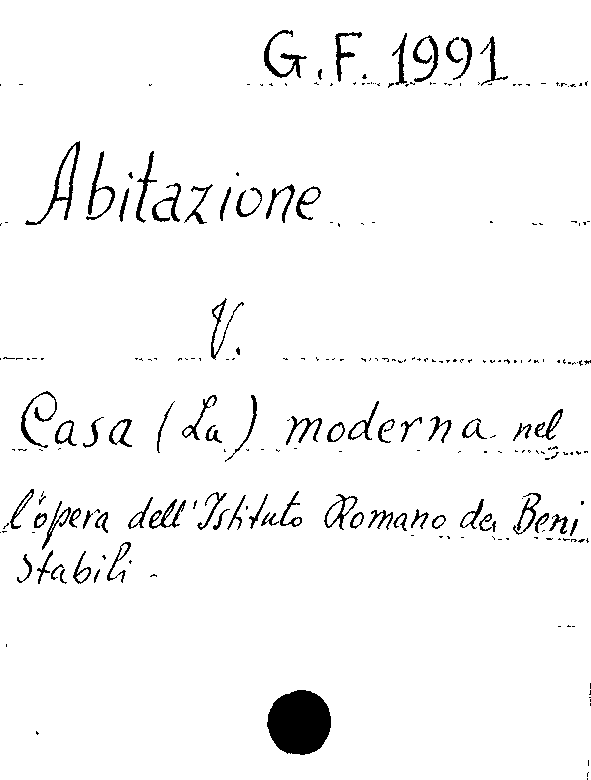 G.F. 1991
Abitazione
V.
Casa (La) moderna nel
l'opera dell'Istituto Romano dei Beni
Stabili.